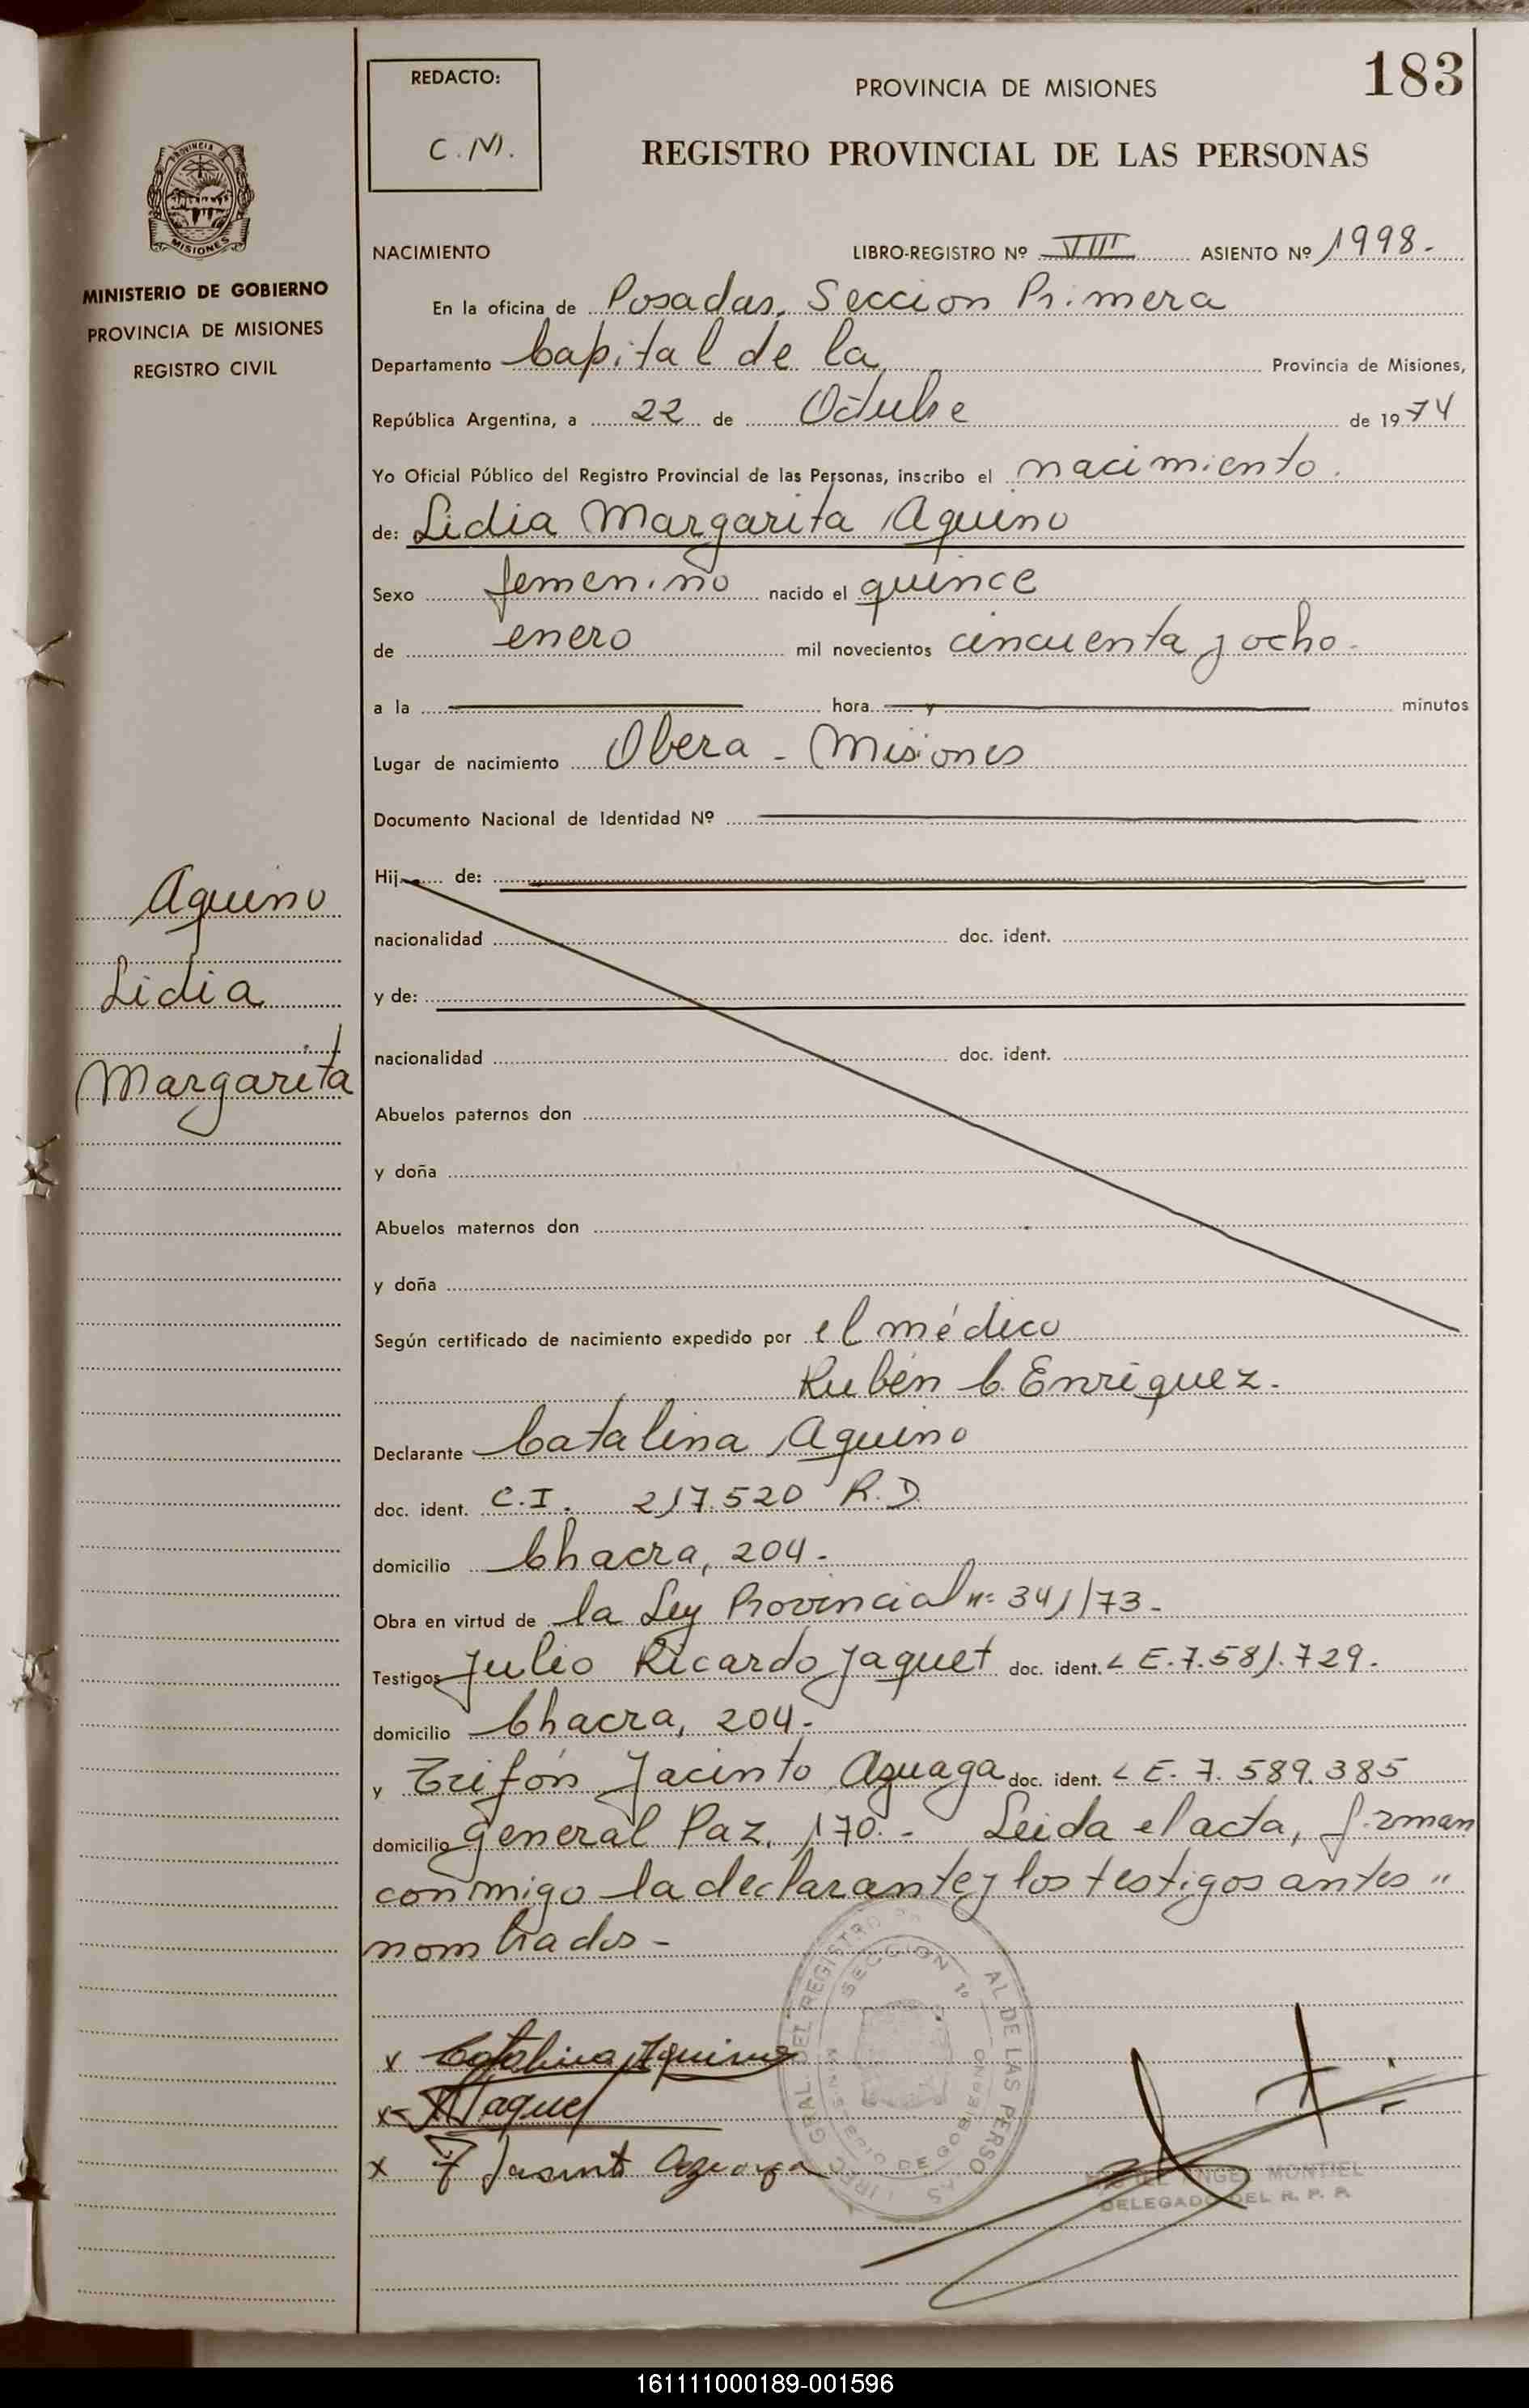 183
REDACTO:
C.M.
PROVINCIA DE MISIONES
REGISTRO PROVINCIAL DE LAS PERSONAS
PROVINCIA
MISIONES
MINISTERIO DE GOBIERNO
PROVINCIA DE MISIONES
REGISTRO CIVIL
NACIMIENTO LIBRO-REGISTRO Nº VIII ASIENTO Nº 1998.-
En la oficina de Posadas, Seccion Primera
Departamento Capital de la Provincia de Misiones,
República Argentina, a 22 de Octubre de 1974
Yo Oficial Público del Registro Provincial de las Personas, inscribo el nacimiento.
de: Lidia Margarita Aquino
Sexo femenino nacido el quince
de enero mil novecientos cincuenta y ocho-
a la hora y minutos
Lugar de nacimiento Obera - Misiones
Documento Nacional de Identidad Nº
Hij de:
nacionalidad doc. ident.
y de:
nacionalidad doc. ident.
Abuelos paternos don
y doña
Abuelos maternos don
y doña
Aquino
Lidia
Margarita
Según certificado de nacimiento expedido por el médico
Rubén C. Enriquez.
Declarante Catalina Aquino
doc. ident. C.I. 217.520 R.D
domicilio Chacra, 204-
Obra en virtud de la Ley Provincial nº 341/73-
Testigos Julio Ricardo Jaquet doc. ident. L E. 7.581.729.
domicilio Chacra, 204-
y Trifón Jacinto Azuaga doc. ident. L E. 7.589.385
domicilio General Paz, 170.- Leida el acta, firman
conmigo la declarante y los testigos antes "
nombrados-
x Catalina Aquino
x- Jaquet
x Jasinto Azuaga
SECCION 1º
MINISTERIO DE GOBIERNO
ANGEL MONTIEL
DELEGADO DEL R. P. P.
161111000189-001596